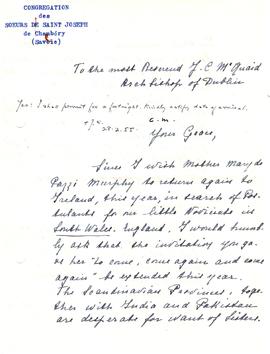 CONGREGATION
des
SOEURS DE SAINT JOSEPH
de Chambéry
(Savoie)
To the most Reverend J. C. McQuaid
Archbishop of Dublin
Yes: I shall permit for a fortnight. Kindly notify date of arrival.
28-2-55.
Your Grace,
Since I wish Mother Mary de
Pazzi Murphy to return again to
Ireland, this year, in search of Pos-
tulants for our little Novitiate in
South Wales, England, I would humb-
ly ask that the invitation you ga-
ve her "to come, come again and come
again" be extended this year.
The Scandinavian Provinces, toge
ther with India and Pakistan
are desperate for want of Sisters.